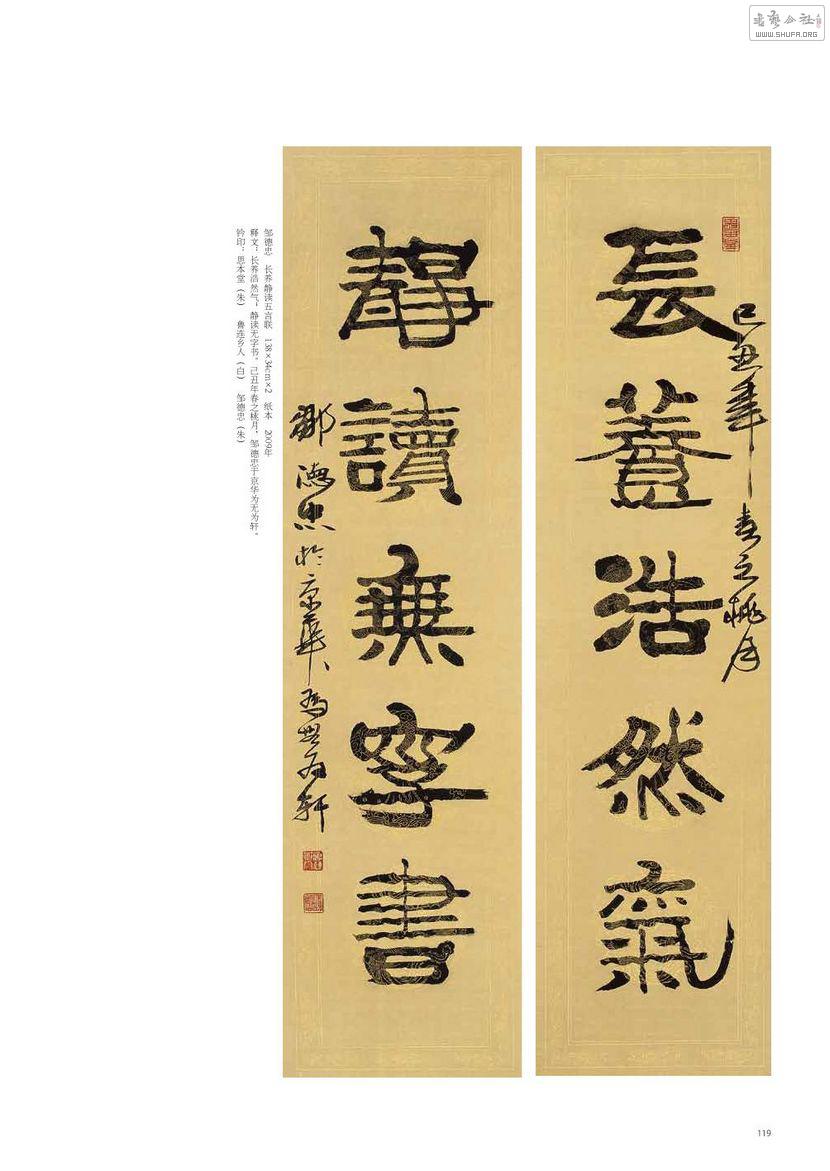 書藝公社
WWW.SHUFA.ORG
長養浩然氣
己丑年春之桃月
靜讀無字書
鄒德忠於京華為無為軒
邹德忠 长养静读五言联 138×34cm×2 纸本 2009年
释文：长养浩然气，静读无字书。己丑年春之桃月，邹德忠于京华为无为轩。
钤印：思本堂（朱） 鲁连乡人（白） 邹德忠（朱）
119